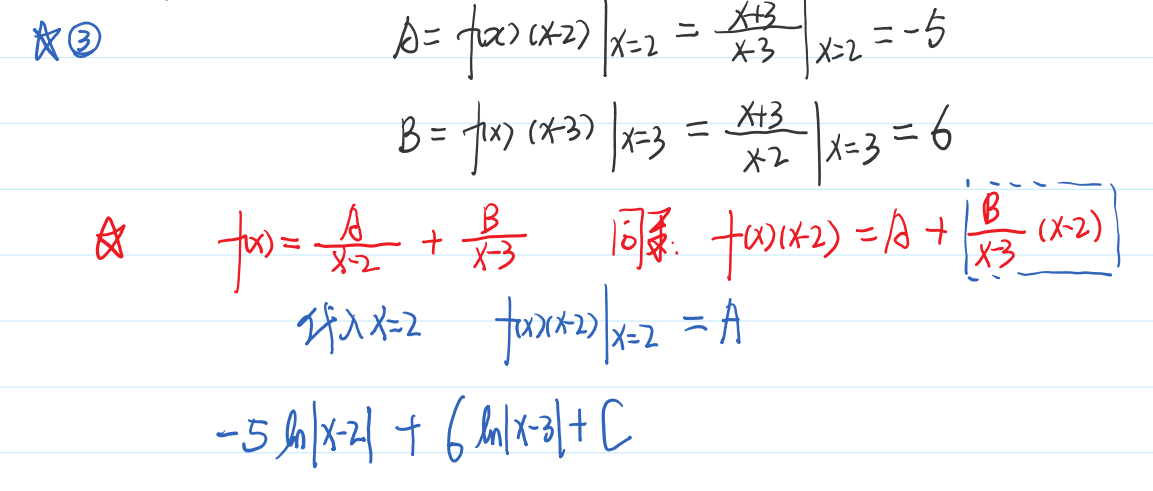 ☆③ A = f(x)(x-2)|x=2 = (x+3)/(x-3)|x=2 = -5
B = f(x)(x-3)|x=3 = (x+3)/(x-2)|x=3 = 6
☆ f(x) = A/(x-2) + B/(x-3) 同乘: f(x)(x-2) = A + B/(x-3) (x-2)
代入x=2 f(x)(x-2)|x=2 = A
-5 ln|x-2| + 6 ln|x-3| + C